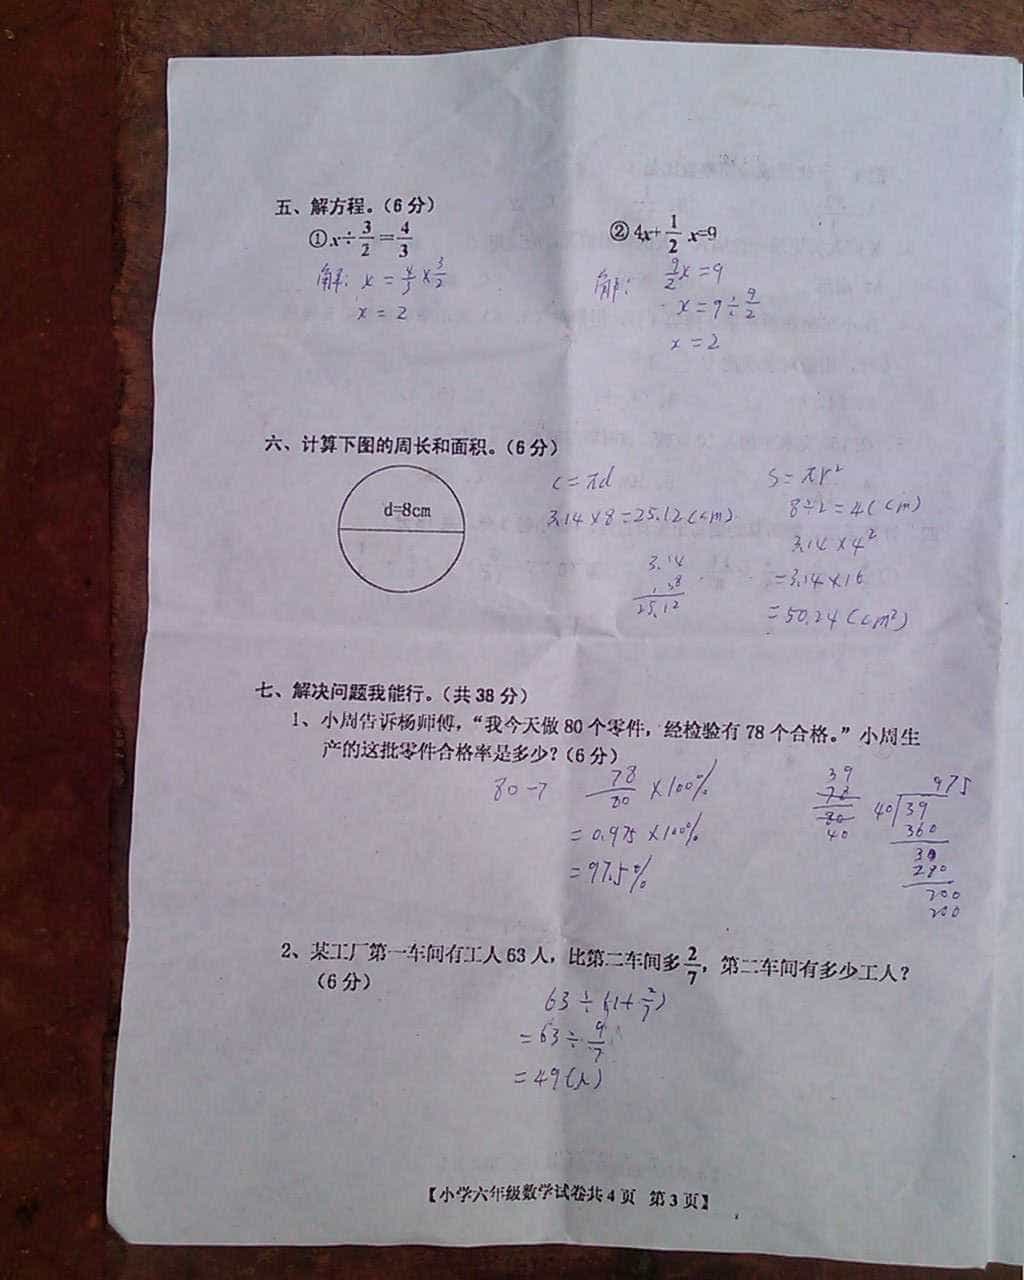 五、解方程。(6分)
①x÷3/2=4/3
解: x = 4/3 × 3/2
x = 2
②4x+1/2 x=9
解: 9/2 x = 9
x = 9 ÷ 9/2
x = 2
六、计算下图的周长和面积。(6分)
d=8cm
C = πd
3.14 × 8 = 25.12 (cm)
3.14
× 8
25.12
S = πr²
8÷2 = 4 (cm)
3.14 × 4²
= 3.14 × 16
= 50.24 (cm²)
七、解决问题我能行。(共38分)
1、小周告诉杨师傅,“我今天做80个零件,经检验有78个合格。”小周生
产的这批零件合格率是多少?(6分)
80 - 7
78/80 × 100%
= 0.975 × 100%
= 97.5%
39
78
80
40
975
40 39
360
30
280
200
200
2、某工厂第一车间有工人63人,比第二车间多2/7,第二车间有多少工人?
(6分)
63 ÷ (1 + 2/7)
= 63 ÷ 9/7
= 49 (人)
【小学六年级数学试卷共4页 第3页】